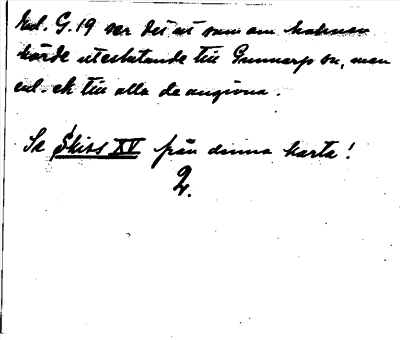 Enl. G. 19 ser det ut som om kvarnen
hörde uteslutande till Gunnarp sn, men
enl. ek till alla de angivna.
Se Skiss XV från denna karta!
2.